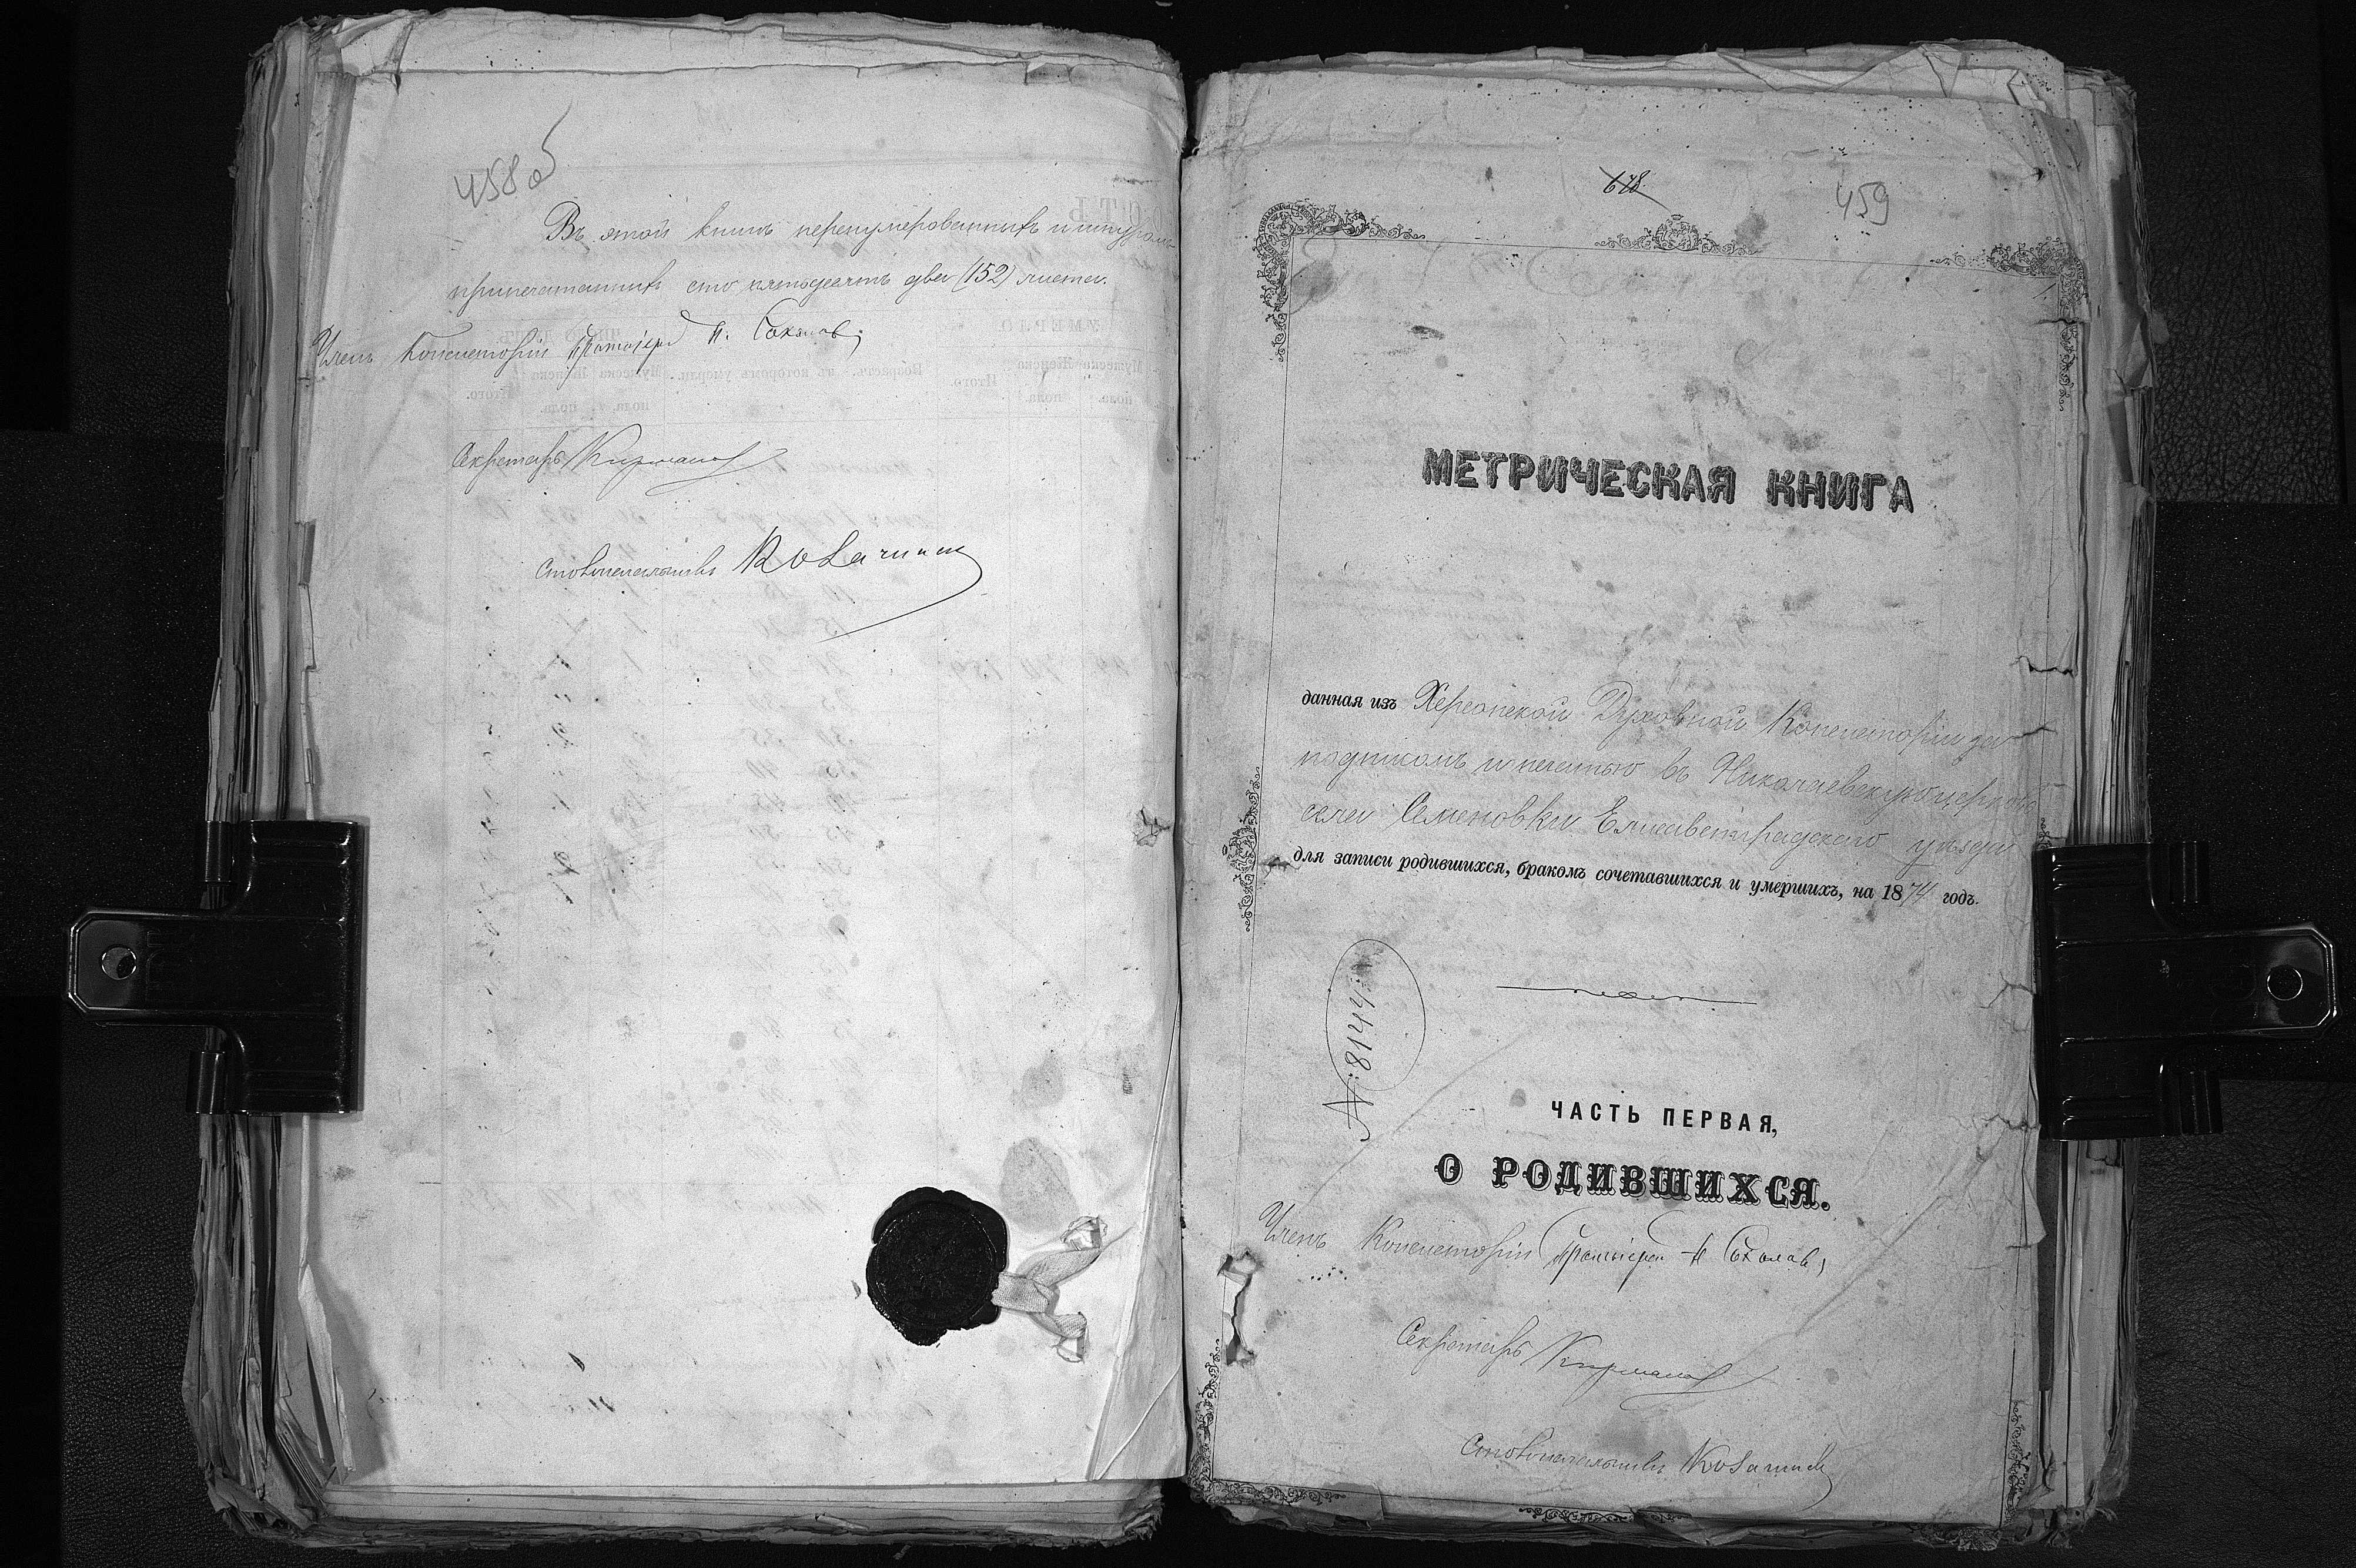 458 об
Въ этой книгѣ перенумерованныхъ и шнуромъ
припечатанныхъ сто пятьдесятъ два (152) листа.
Членъ Консисторіи Протоіерей Соколовъ
Секретарь
Столоначальникъ
678.
459
1.
МЕТРИЧЕСКАЯ КНИГА
данная изъ Херсонской Духовной Консисторіи за
подписомъ и печатью въ Николаевскую церковь
села Семеновки Елисаветградскаго уѣзда
для записи родившихся, бракомъ сочетавшихся и умершихъ, на 1874 годъ.
№ 8144.
ЧАСТЬ ПЕРВАЯ,
О РОДИВШИХСЯ.
Членъ Консисторіи Протоіерей Соколовъ
Секретарь
Столоначальникъ